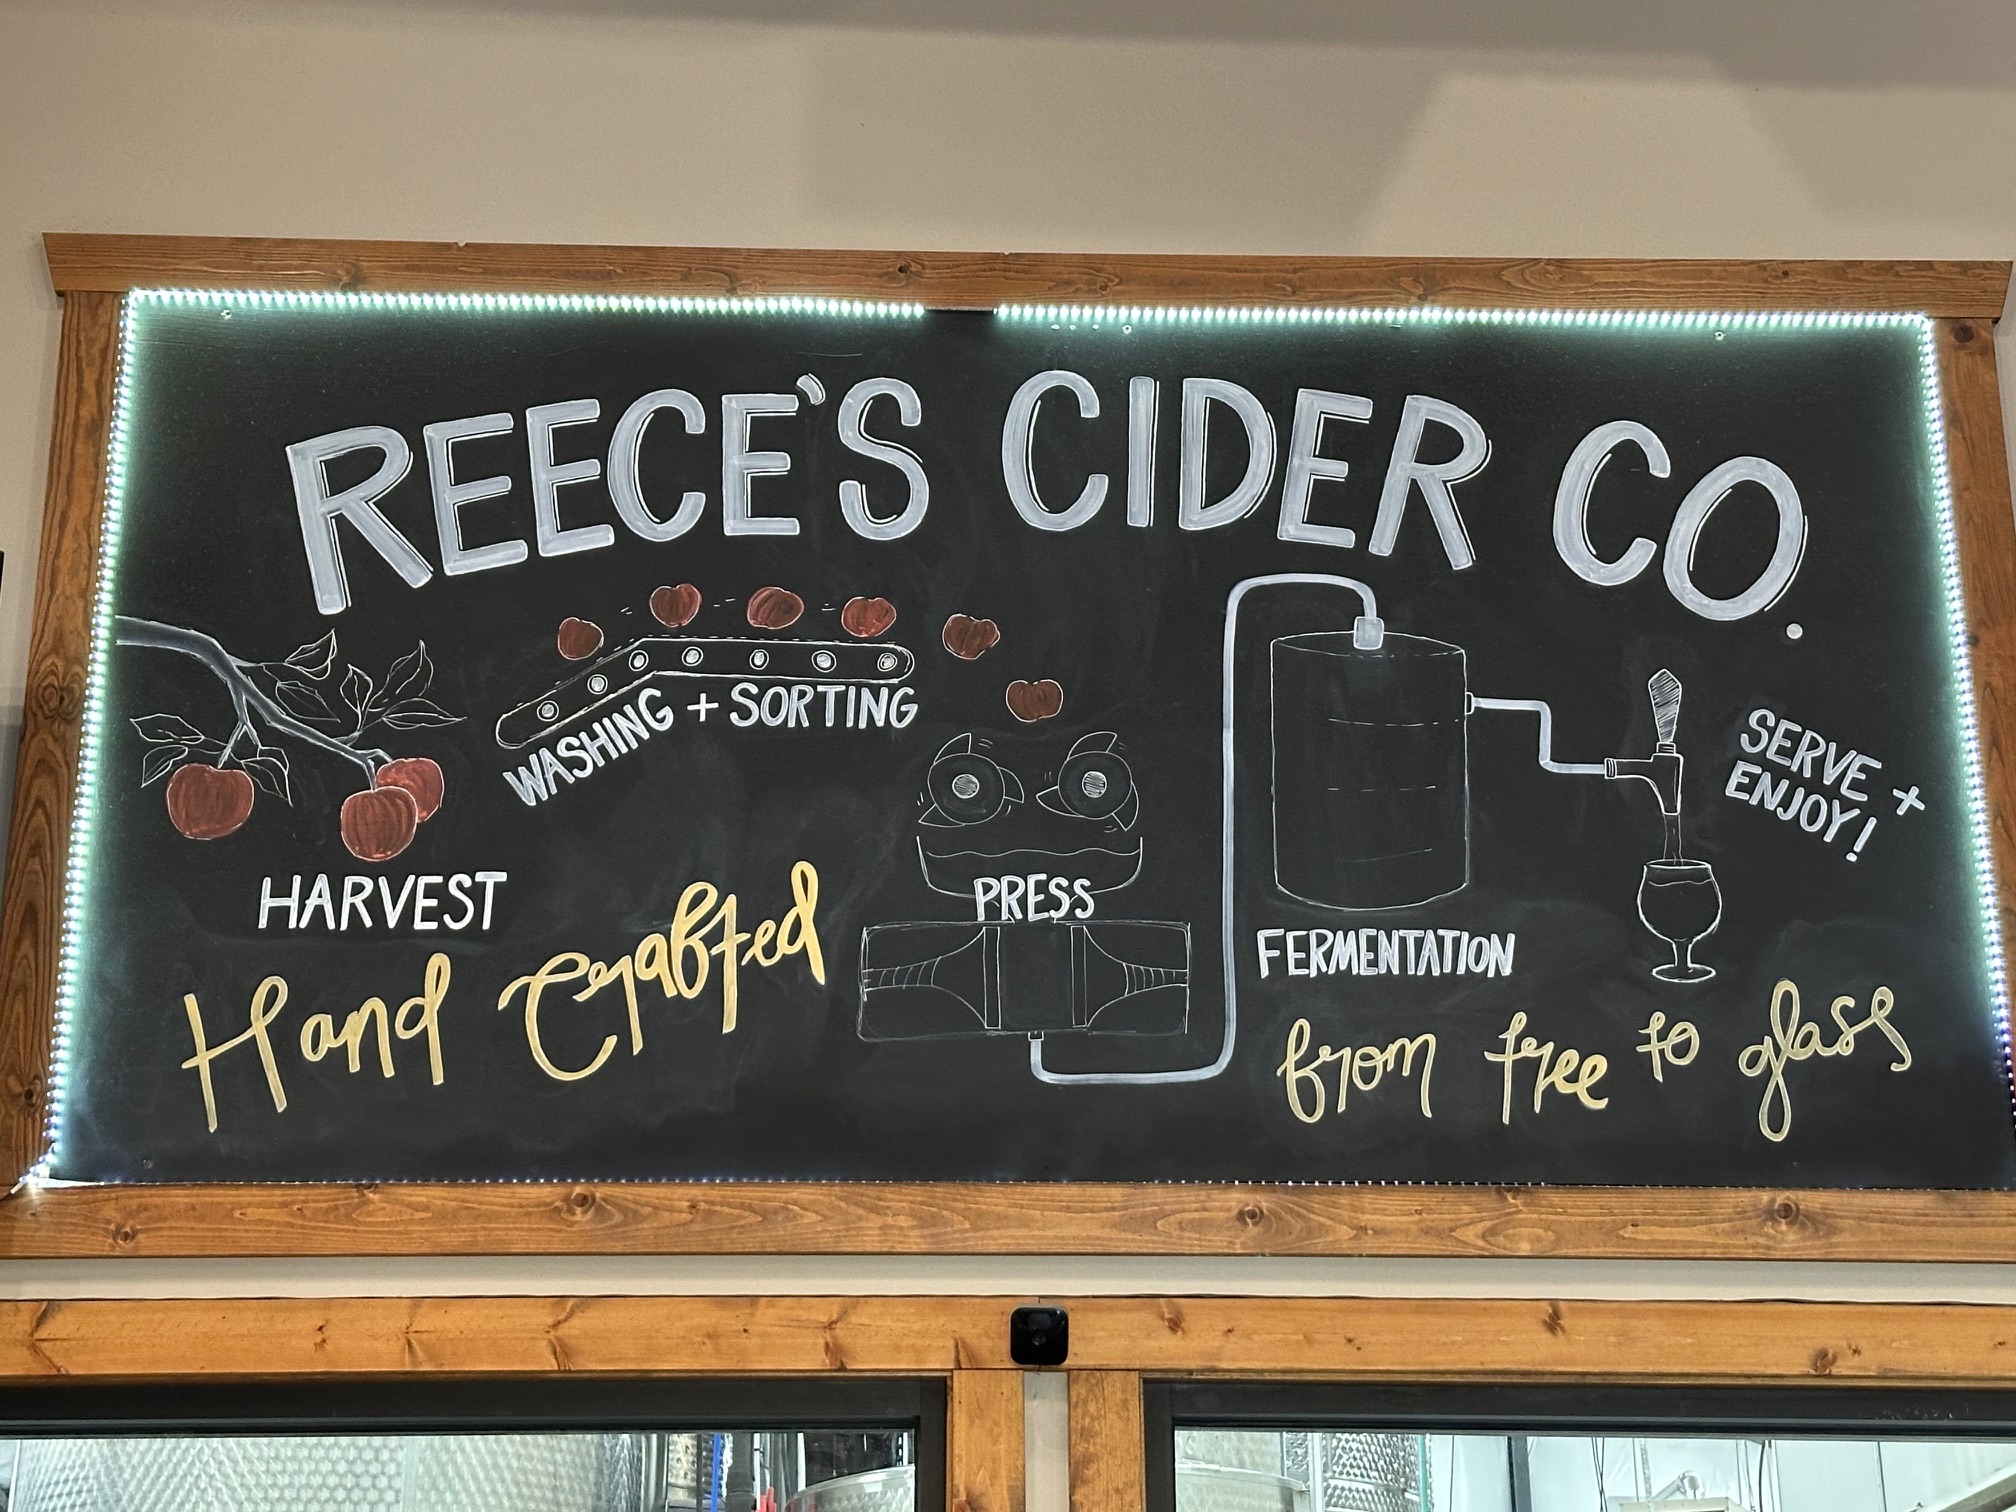 REECE'S CIDER CO.
WASHING + SORTING
HARVEST
PRESS
FERMENTATION
SERVE +
ENJOY!
Hand Crafted
from tree to glass